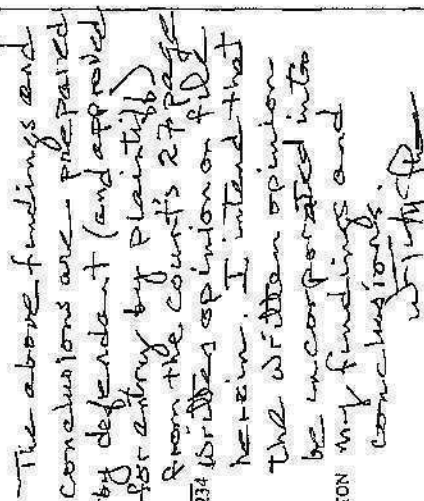 The above findings and
conclusions are prepared
by defendant (and approved
for entry by plaintiff)
from the court's 27 page
written opinion on file
herein. I intend that
the written opinion
be incorporated into
my findings and
conclusions.
234
TON